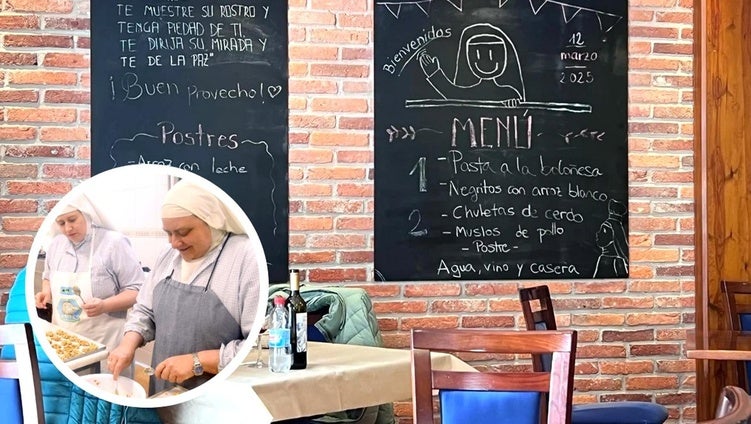 TE MUESTRE SU ROSTRO Y
TENGA PIEDAD DE TI.
TE DIRIJA SU MIRADA Y
TE DE LA PAZ"
¡Buen provecho!
Postres
- Arroz con leche
Bienvenidos
12
marzo
2025
MENÚ
1 - Pasta a la boloñesa
- Negritos con arroz blanco
2 - Chuletas de cerdo
- Muslos de pollo
- Postre -
Agua, vino y casera